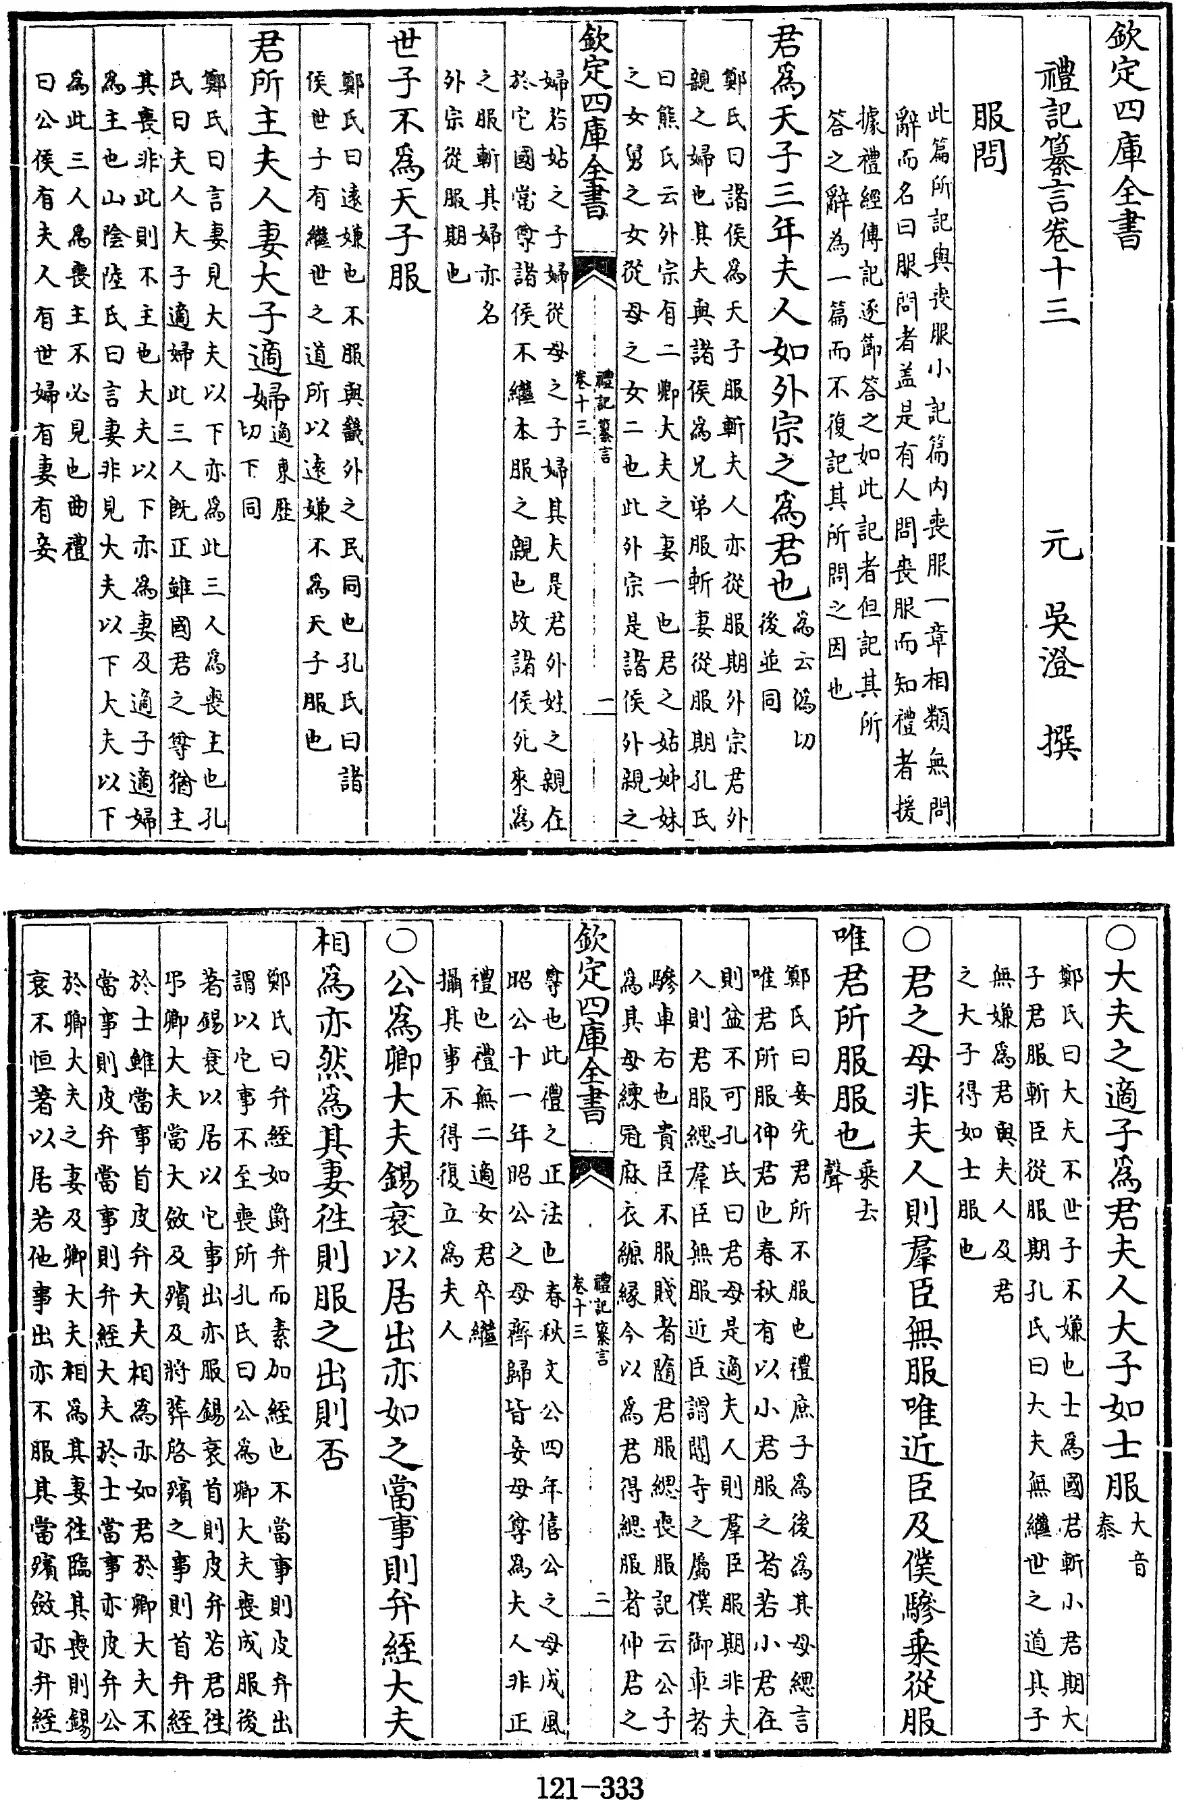 欽定四庫全書
禮記纂言卷十三
元 吳澄 撰
服問
此篇所記與喪服小記篇内喪服一章相類無問
辭而名曰服問者蓋是有人問喪服而知禮者援
據禮經傳記逐節答之如此記者但記其所
答之辭為一篇而不復記其所問之因也
君為天子三年夫人如外宗之為君也
為云偽切
後並同
鄭氏曰諸侯為天子服斬夫人亦從服期外宗君外
親之婦也其夫與諸侯為兄弟服斬妻從服期孔氏
曰熊氏云外宗有二卿大夫之妻一也君之姑姊妹
之女舅之女從母之女二也此外宗是諸侯外親之
欽定四庫全書
禮記纂言
卷十三
一
婦若姑之子婦從母之子婦其夫是君外姓之親在
於它國當尊諸侯不繼本服之親也故諸侯死來為
之服斬其婦亦名
外宗從服期也
世子不為天子服
鄭氏曰遠嫌也不服與畿外之民同也孔氏曰諸
侯世子有繼世之道所以遠嫌不為天子服也
君所主夫人妻大子適婦
適東歷
切下同
鄭氏曰言妻見大夫以下亦為此三人為喪主也孔
氏曰夫人大子適婦此三人既正雖國君之尊猶主
其喪非此則不主也大夫以下亦為妻及適子適婦
為主也山陰陸氏曰言妻非見大夫以下大夫以下
為此三人為喪主不必見也曲禮
曰公侯有夫人有世婦有妻有妾
○大夫之適子為君夫人大子如士服
大音
泰
鄭氏曰大夫不世子不嫌也士為國君斬小君期大
子君服斬臣從服期孔氏曰大夫無繼世之道其子
無嫌為君與夫人及君
之大子得如士服也
○君之母非夫人則羣臣無服唯近臣及僕驂乘從服
唯君所服服也
乘去
聲
鄭氏曰妾先君所不服也禮庶子為後為其母緦言
唯君所服伸君也春秋有以小君服之者若小君在
則益不可孔氏曰君母是適夫人則羣臣服期非夫
人則君服緦羣臣無服近臣謂閽寺之屬僕御車者
驂車右也貴臣不服賤者隨君服緦喪服記云公子
為其母練冠麻衣縓緣今以為君得緦服者伸君之
欽定四庫全書
禮記纂言
卷十三
二
尊也此禮之正法也春秋文公四年僖公之母成風
昭公十一年昭公之母齊歸皆妾母尊為夫人非正
禮也禮無二適女君卒繼
攝其事不得復立為夫人
○公為卿大夫錫衰以居出亦如之當事則弁絰大夫
相為亦然為其妻往則服之出則否
鄭氏曰弁絰如爵弁而素加絰也不當事則皮弁出
謂以它事不至喪所孔氏曰公為卿大夫喪成服後
著錫衰以居以它事出亦服錫衰首則皮弁若君往
弔卿大夫當大斂及殯及將葬啓殯之事則首弁絰
於士雖當事首皮弁大夫相為亦如君於卿大夫不
當事則皮弁當事則弁絰大夫於士當事亦皮弁公
於卿大夫之妻及卿大夫相為其妻往臨其喪則錫
衰不恒著以居若他事出亦不服其當殯斂亦弁絰
121-333